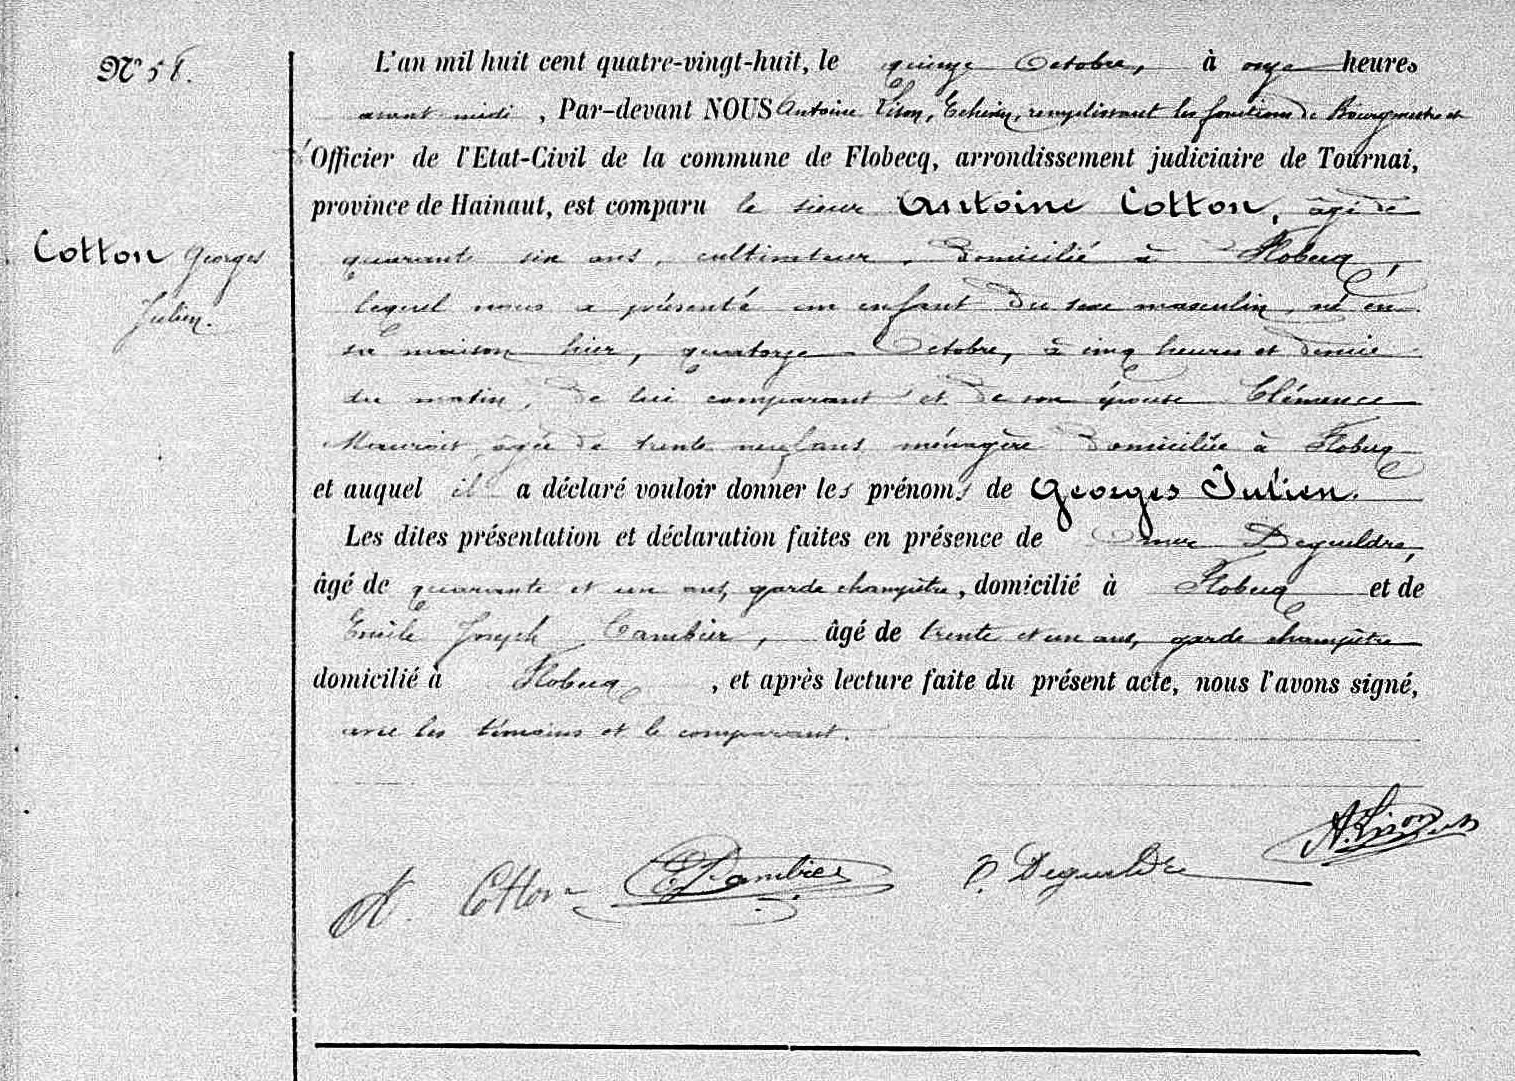 N° 58.
L'an mil huit cent quatre-vingt-huit, le quinze Octobre, à onze heures
avant midi, Par-devant NOUS Antoine Lison, Echevin, remplissant les fonctions de Bourgmestre et
Officier de l'Etat-Civil de la commune de Flobecq, arrondissement judiciaire de Tournai,
province de Hainaut, est comparu le sieur Antoine Cotton, âgé de
Cotton Georges
Julien.
quarante six ans, cultivateur, domicilié à Flobecq,
lequel nous a présenté un enfant du sexe masculin, né en
sa maison hier, quatorze Octobre, à cinq heures et demie
du matin, de lui comparant et de son épouse Clémence
âgée de trente neuf ans, ménagère domiciliée à Flobecq
et auquel il a déclaré vouloir donner les prénoms de Georges Julien.
Les dites présentation et déclaration faites en présence de Omer Degueldre,
âgé de quarante et un ans, garde champêtre, domicilié à Flobecq et de
Emile Joseph Cambier, âgé de trente et un ans, garde champêtre
domicilié à Flobecq, et après lecture faite du présent acte, nous l'avons signé,
avec les témoins et le comparant.
A. Lison
A. Cotton E Cambier O. Degueldre